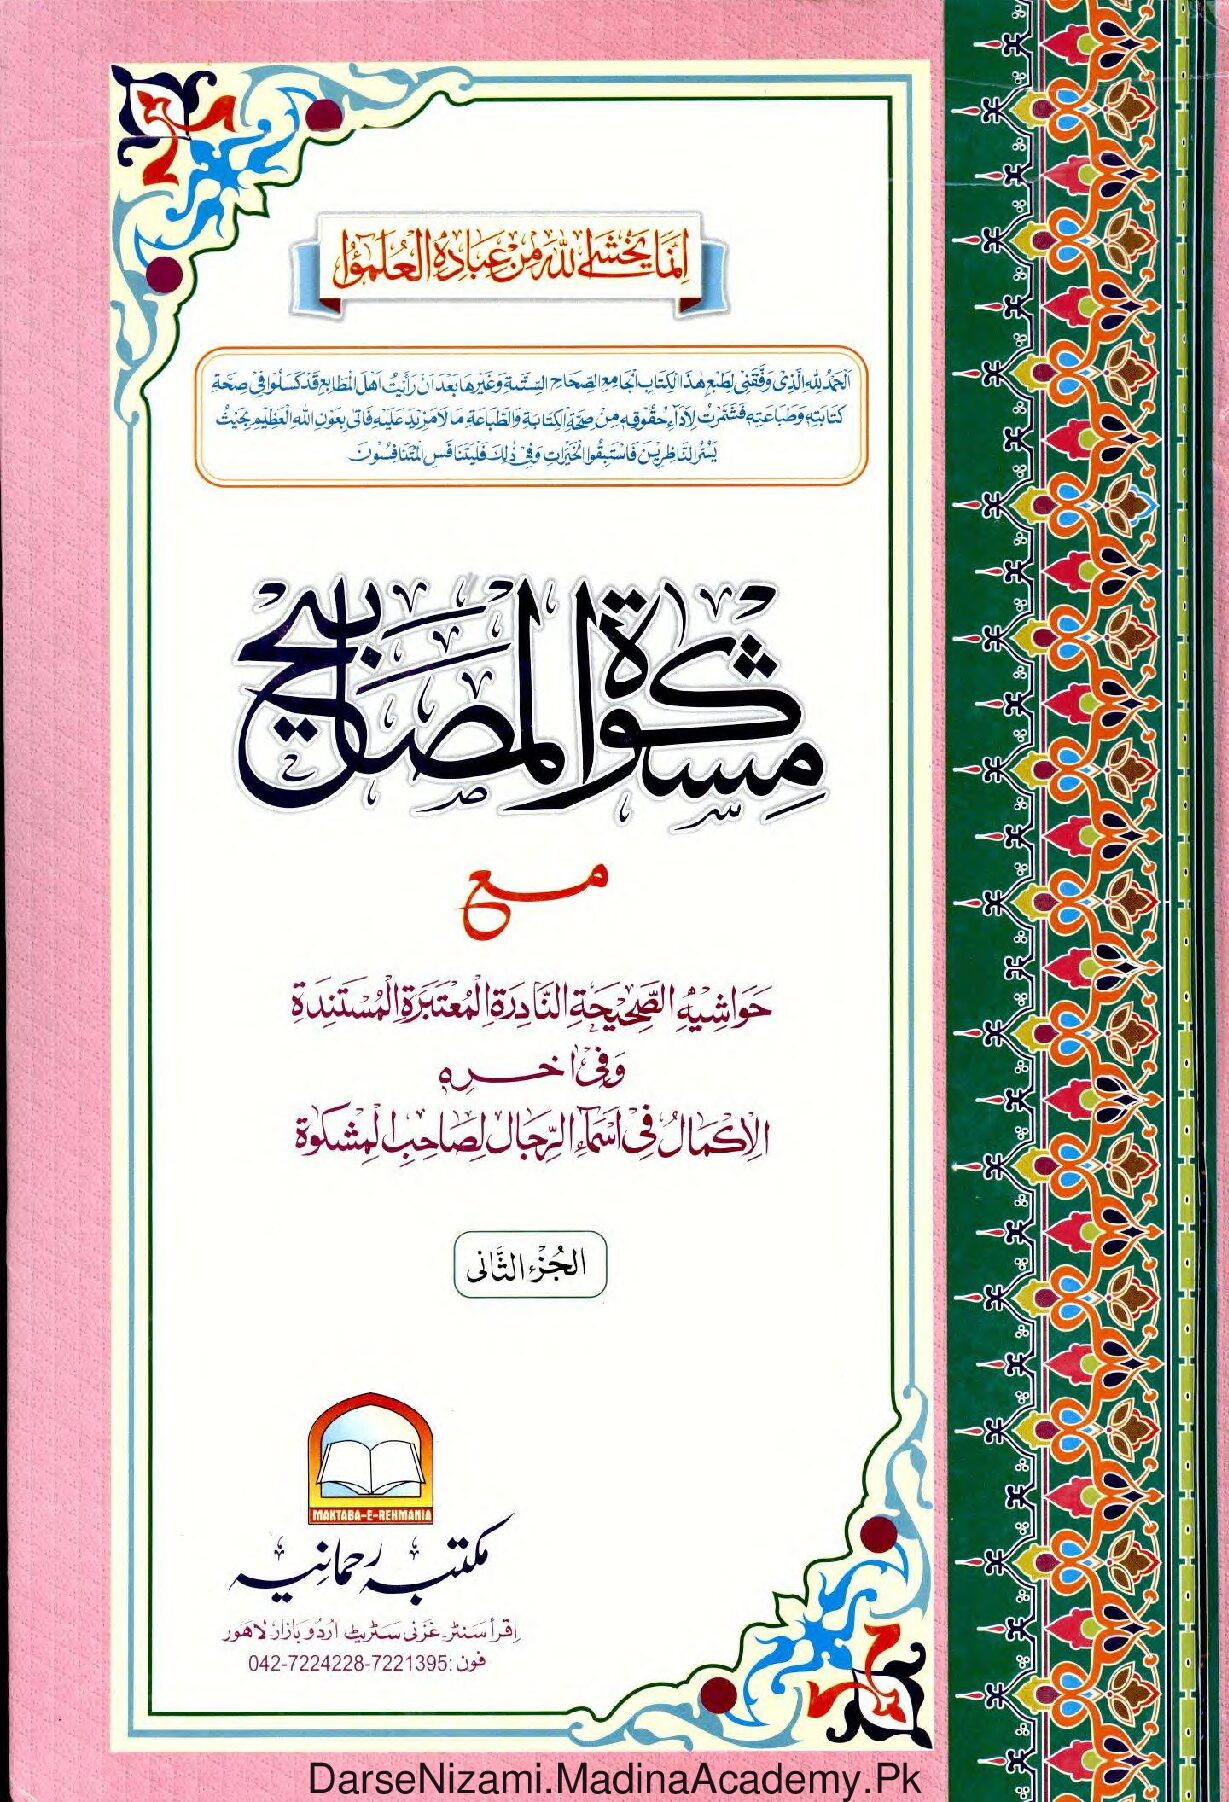 اِنَّمَا يَخْشَى اللّٰهَ مِنْ عِبَادِهِ الْعُلَمٰٓؤُا
اَلْحَمْدُ لِلّٰهِ الَّذِیْ وَفَّقَنِیْ لِطَبْعِ هٰذَا الْکِتَابِ الْجَامِعِ الصِّحَاحِ السِّتَّةِ وَغَيْرِهَا بَعْدَ اَنْ رَاَيْتُ اَهْلَ الْمَطَابِعِ قَدْ کَسَلُوْا فِیْ صِحَّةِ
کِتَابَتِهٖ وَطِبَاعَتِهٖ فَشَمَّرْتُ لِاَدَآءِ حُقُوْقِهٖ مِنْ صِحَّةِ الْکِتَابَةِ وَالطِّبَاعَةِ مَا لَا مَزِيْدَ عَلَيْهِ فَاَتٰی بِعَوْنِ اللّٰهِ الْعَظِيْمِ بِحَيْثُ
يَسُرُّ النَّاظِرِيْنَ فَاسْتَبِقُوا الْخَيْرَاتِ وَفِیْ ذٰلِكَ فَلْيَتَنَافَسِ الْمُتَنَافِسُوْنَ
مِشْکٰوةُ الْمَصَابِيْحِ
مع
حَوَاشِيْهِ الصَّحِيْحَةِ النَّادِرَةِ الْمُعْتَبَرَةِ الْمُسْتَنِدَةِ
وَفِیْ اٰخِرِهٖ
اَلْاِکْمَالُ فِیْ اَسْمَآءِ الرِّجَالِ لِصَاحِبِ الْمِشْکٰوةِ
الجُزْءُ الثَّانی
MAKTABA-E-REHMANIA
مکتبہ رحمانیہ
اِقرأ سَنٹر غَزنی سٹریٹ اُردو بازار لاہور
فون: 042-7224228-7221395
DarseNizami.MadinaAcademy.Pk